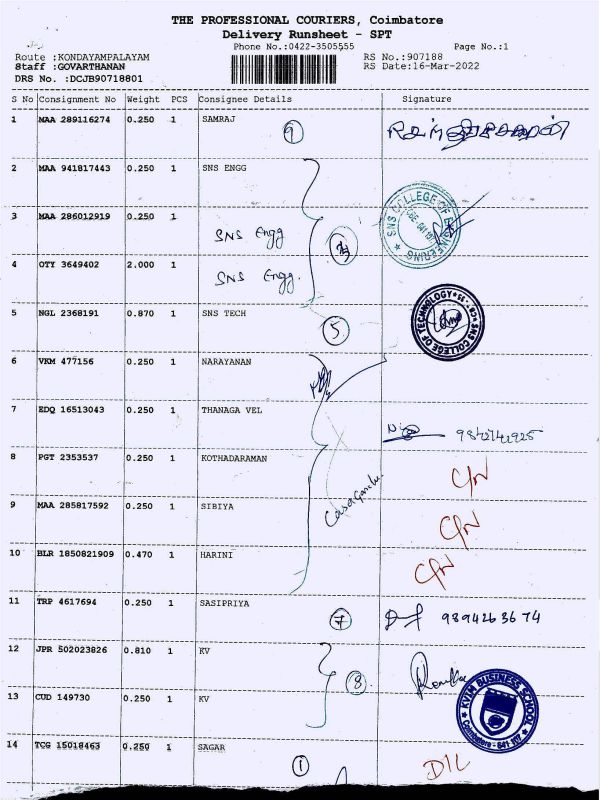 THE PROFESSIONAL COURIERS, Coimbatore
Delivery Runsheet - SPT
Phone No.:0422-3505555 Page No.:1
Route :KONDAYAMPALAYAM RS No.:907188
Staff :GOVARTHANAN RS Date:16-Mar-2022
DRS No. :DCJB90718801
S No Consignment No Weight PCS Consignee Details Signature
1 MAA 289116274 0.250 1 SAMRAJ
9
2 MAA 941817443 0.250 1 SNS ENGG
3 MAA 286012919 0.250 1 SNS Engg
SNS COLLEGE OF ENGINEERING
4 OTY 3649402 2.000 1 SNS Engg.
5 NGL 2368191 0.870 1 SNS TECH
5
SNS COLLEGE OF TECHNOLOGY
6 VKM 477156 0.250 1 NARAYANAN
7 EDQ 16513043 0.250 1 THANAGA VEL
8 PGT 2353537 0.250 1 KOTHADARAMAN
9 MAA 285817592 0.250 1 SIBIYA
10 BLR 1850821909 0.470 1 HARINI
11 TRP 4617694 0.250 1 SASIPRIYA
7 9894263674
12 JPR 502023826 0.810 1 KV
8
13 CUD 149730 0.250 1 KV
KVIM BUSINESS SCHOOL
Coimbatore - 641 107
14 TCG 15018463 0.250 1 SAGAR
1 D/L